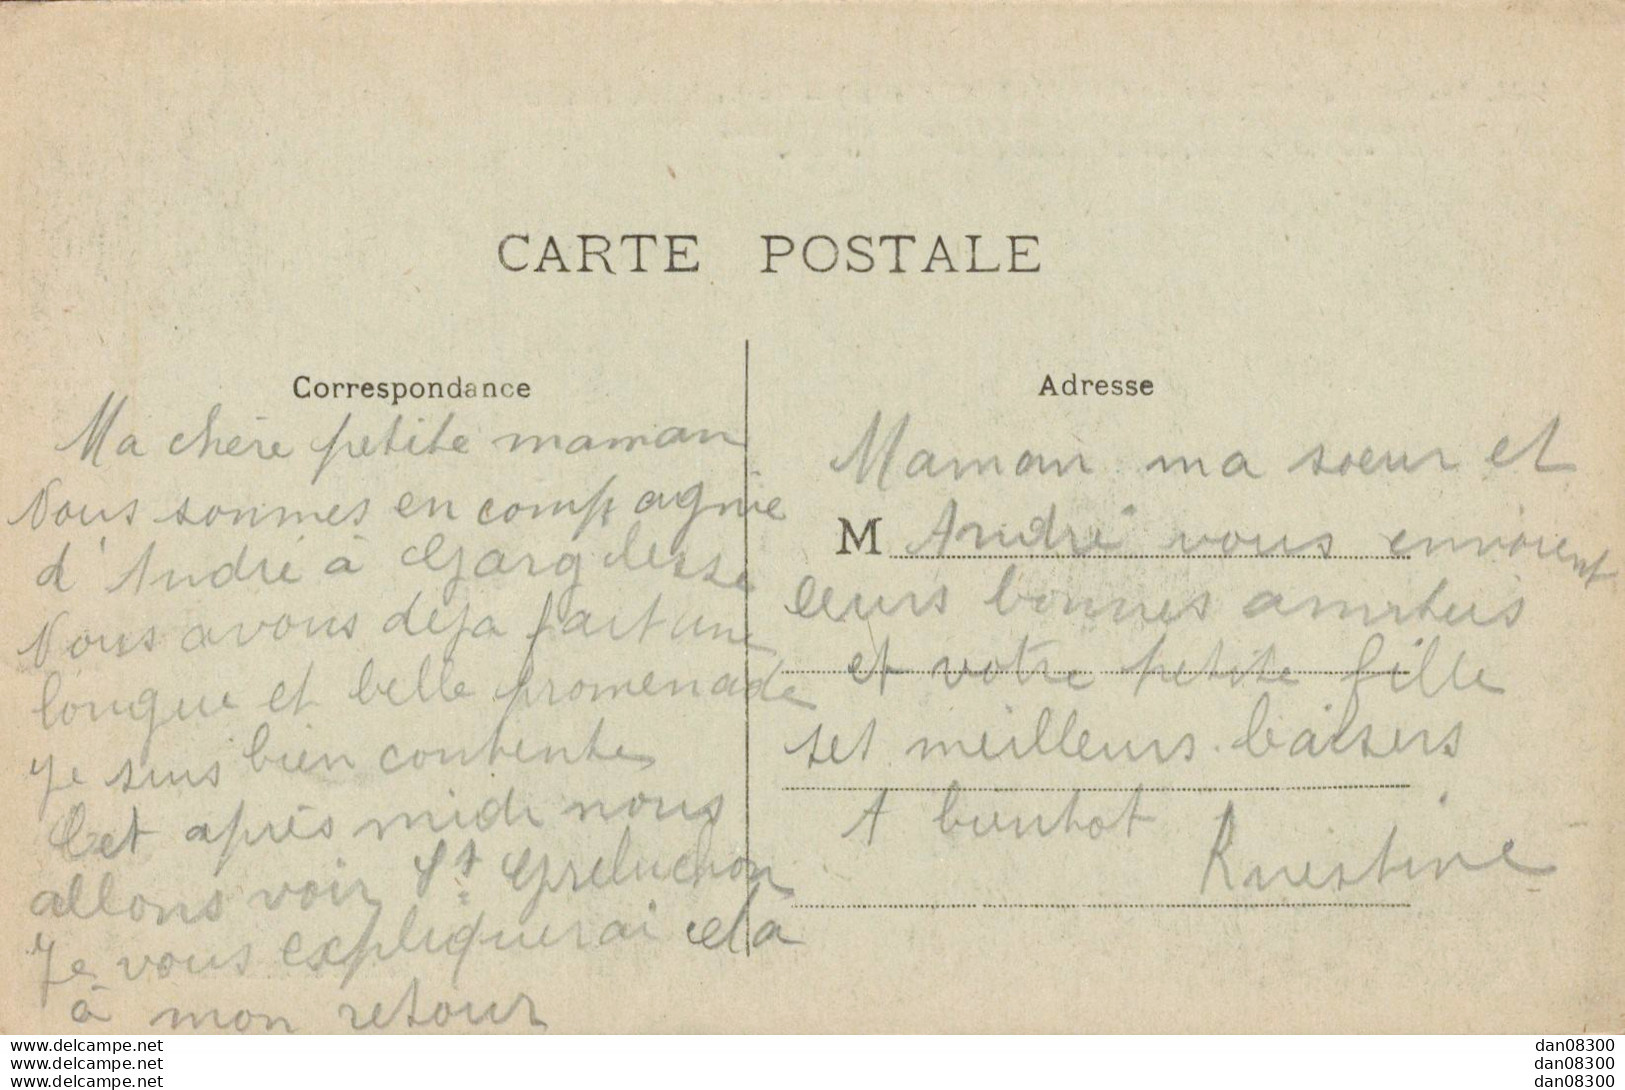 CARTE POSTALE
Correspondance
Ma chère petite maman
Nous sommes en compagnie
d'André à Gargilesse
Nous avons déja fait une
longue et belle promenade
Je suis bien contente
Cet après midi nous
allons voir St Greluchon
Je vous expliquerai cela
à mon retour
Adresse
Maman ma soeur et
M André vous envoient
leurs bonnes amitiés
et votre petite fille
ses meilleurs baisers
A bientot
www.delcampe.net
www.delcampe.net
www.delcampe.net
dan08300
dan08300
dan08300